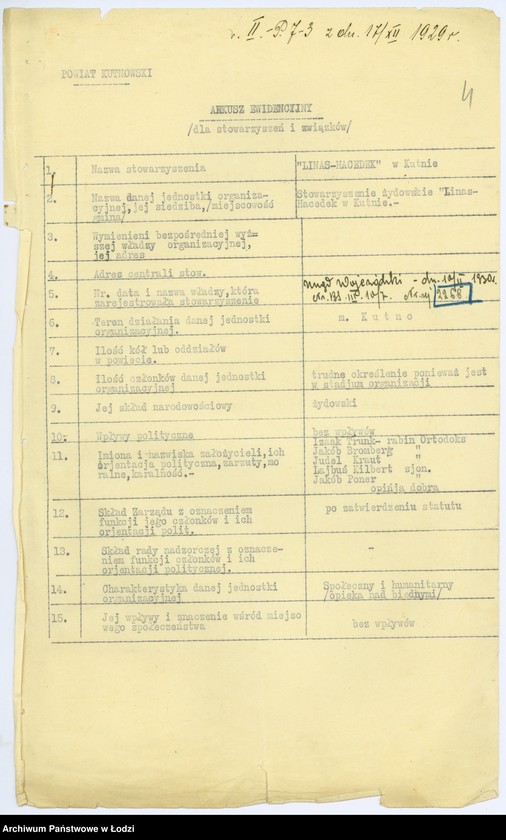 II.-P.7-3 z dn. 17/XII 1929 r.
POWIAT KUTNOWSKI
4
ARKUSZ EWIDENCYJNY
/dla stowarzyszeń i związków/
1. Nazwa stowarzyszenia "LINAS-HACEDEK" w Kutnie
2. Nazwa danej jednostki organiza- Stowarzyszenie żydowskie "Linas-
cyjnej, jej siedziba,/miejscowość Hacedek w Kutnie.-
gmina/
3. Wymienieni bezpośredniej wyż-
szej władzy organizacyjnej,
jej adres
4. Adres centrali stow.
5. Nr. data i nazwa władzy, która Urząd Wojewódzki - dn. 1930r.
zarejestrowała stowarzyszenie 2268
6. Teren działania danej jednostki m. Kutno
organizacyjnej.
7. Ilość kół lub oddziałów
w powiecie.
8. Ilość członków danej jednostki trudne określenie ponieważ jest
organizacyjnej w stadjum organizacji
9. Jej skład narodowościowy żydowski
10. Wpływy polityczne bez wpływów
11. Imiona i nazwiska założycieli, ich Izaak Trunk- rabin Ortodoks
orjentacja polityczna, zarzuty, mo Jakób Bromberg "
ralne, karalność.- Judel Kraut "
Lajbuś Kilbert sjon.
Jakób Poner "
opinja dobra
12. Skład Zarządu z oznaczeniem po zatwierdzeniu statutu
funkcji jego członków i ich
orjentacji polit.
13. Skład rady nadzorczej z oznacze- -
niem funkcji członków i ich
orjentacji politycznej.
14. Charakterystyka danej jednostki Społeczny i humanitarny
organizacyjnej /opieka nad biednymi/
15. Jej wpływy i znaczenie wśród miejsco bez wpływów
wego społeczeństwa
Archiwum Państwowe w Łodzi